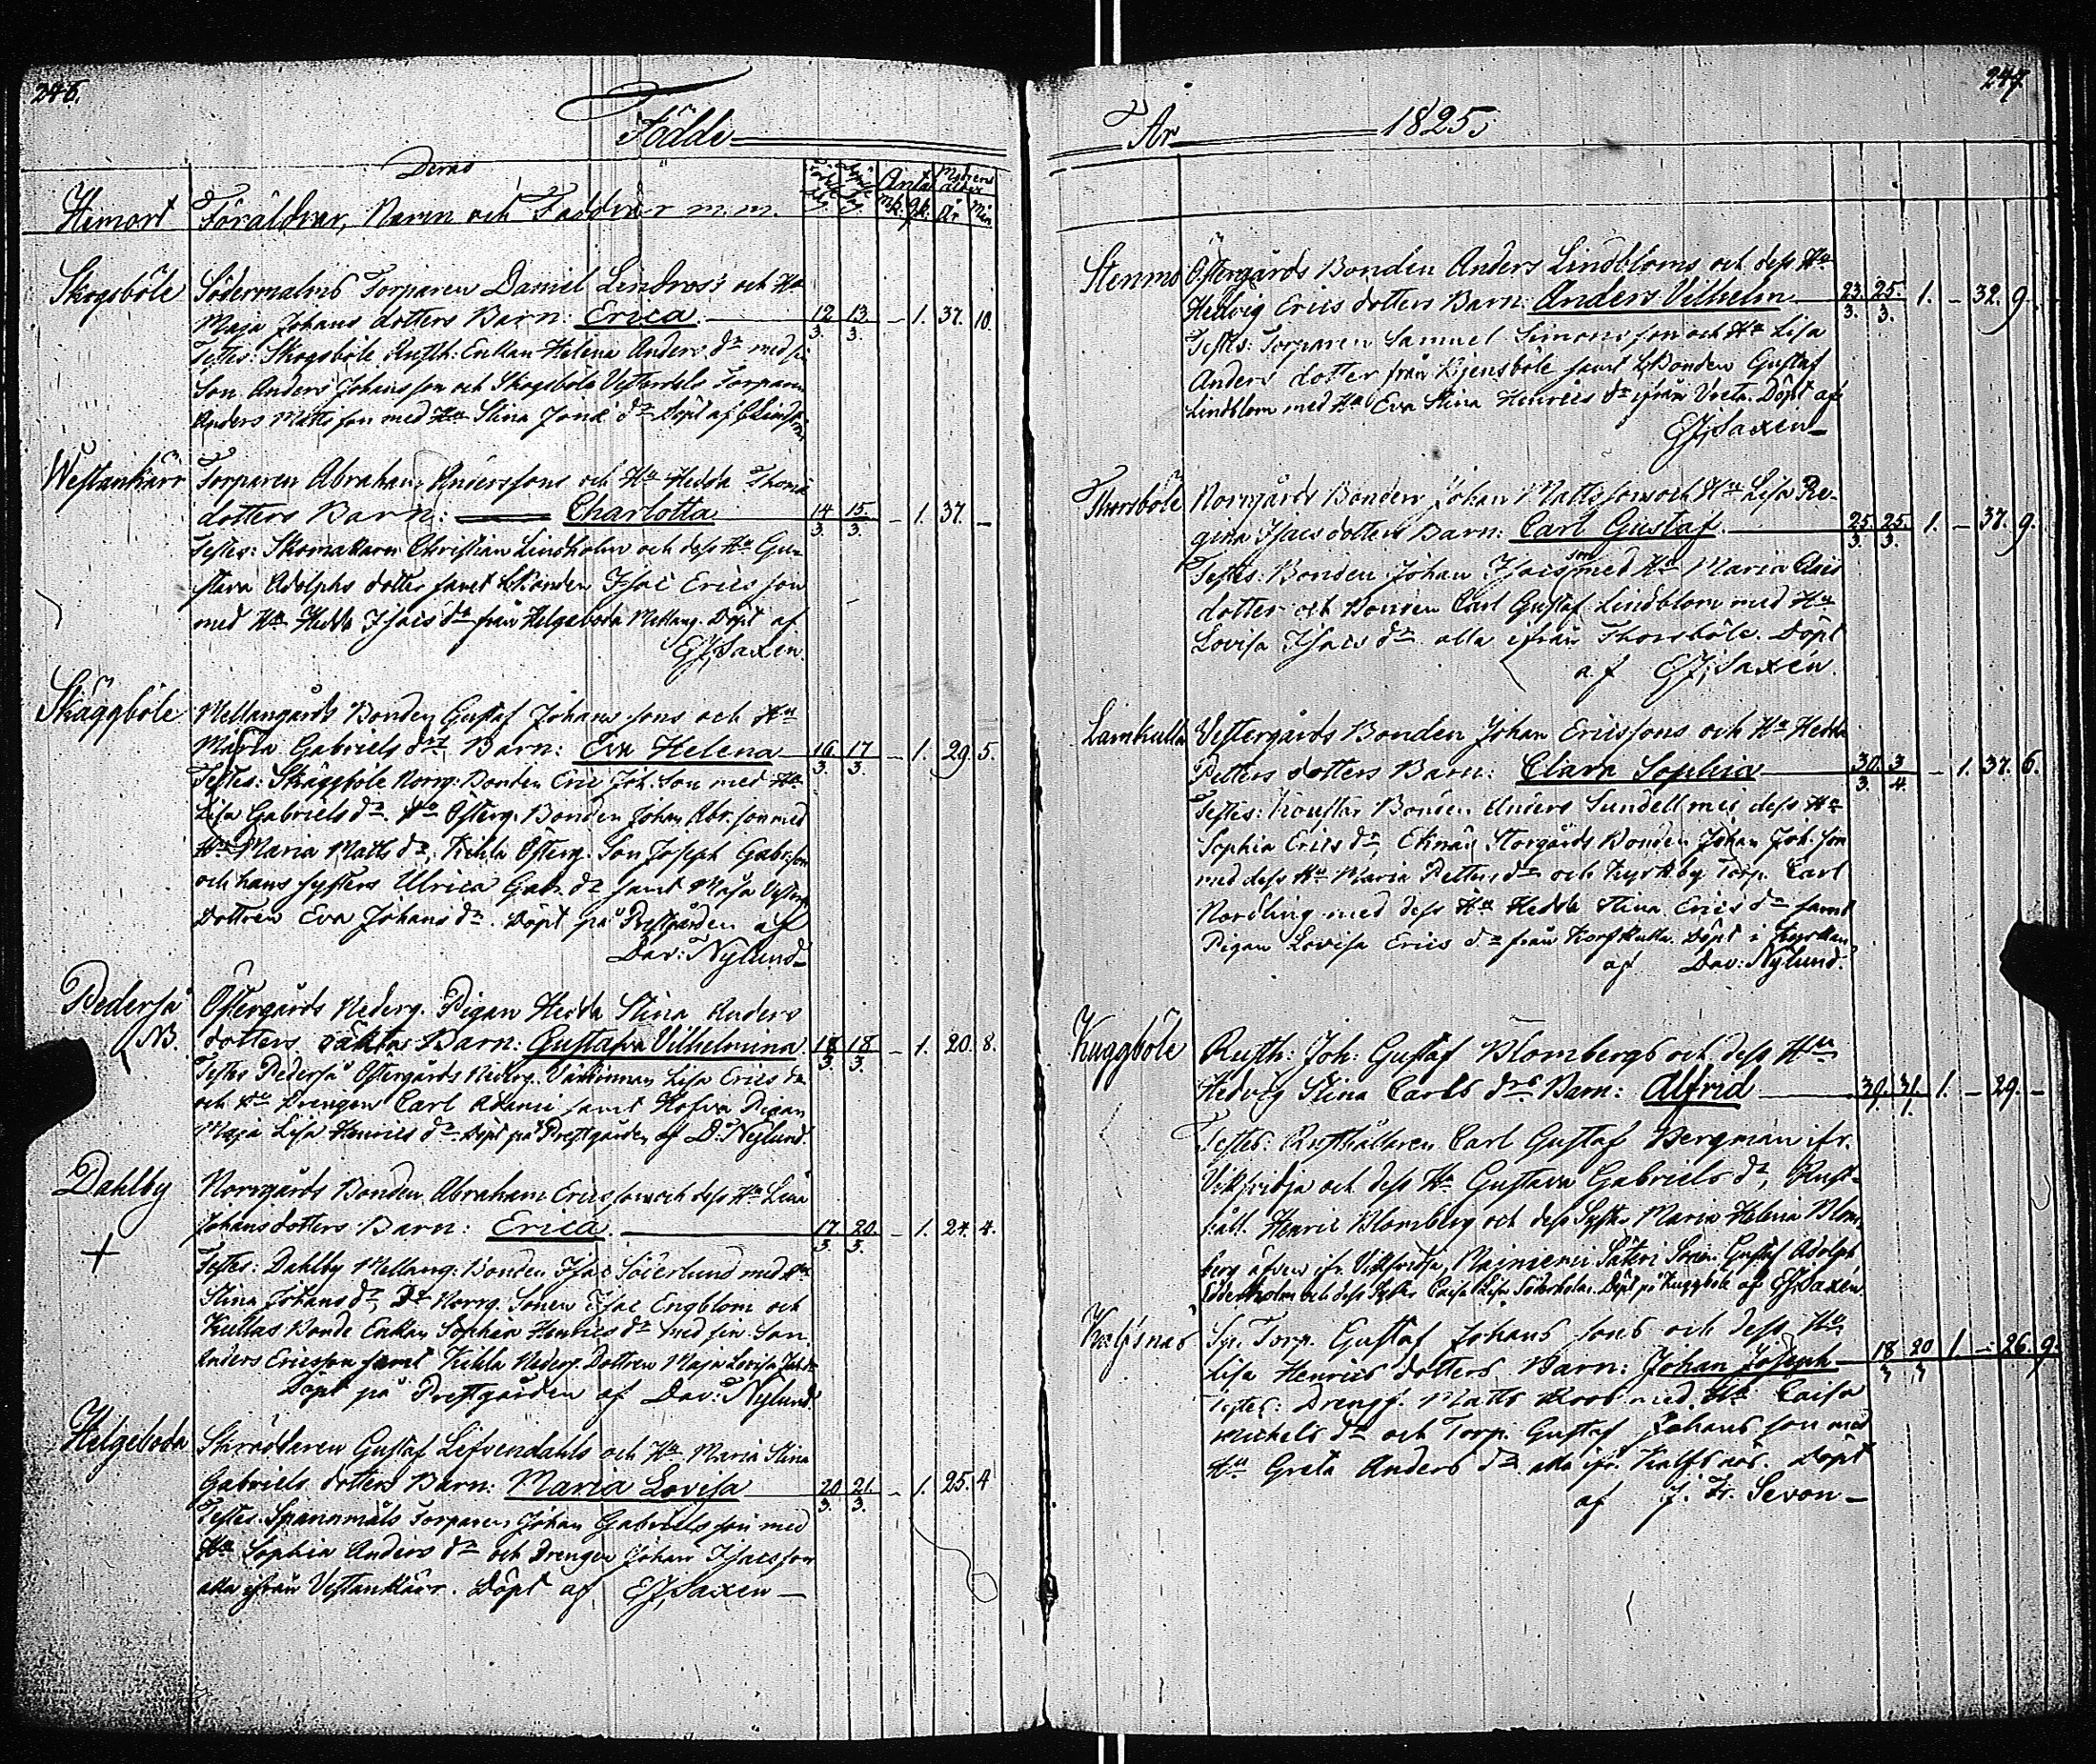 246.
Födde
Deras
Hemort Föräldrar, Namn och Faddrar m.m. Födelse dag Döpelse dag Antal Modrens ålder
mk. qk. år mån.
Skogsböle Södermalms Torparen Daniel Lindros's och Hu
Maja Johans dotters Barn: Erica. 12/3. 13/3. – 1. 37. 10.
Testes: Skogsböle Rusth: Enkan Helena Anders dr med sin
Son Anders Johansson och Skogsböle Torparen
Anders Mattsson med Hu Stina dr Döpt af
Westankärr Torparen Abraham Anderssons och Hu Hedda Thomæ
dotters Barn: Charlotta 14/3. 15/3. – 1. 37. –
Testes: Skomakarn Christian Lindholm och dess Hu Gu-
stava Adolphs dotter samt Bonden Isac Ericsson
med Hu Hedda Isacs dr från Helgeboda Mellang. Döpt af
Saxén.
Skäggböle Mellangårds Bonden Gustaf Johanssons och Hu
Maria Gabriels drs Barn: Eva Helena 16/3. 17/3. – 1. 29. 5.
Testes: Skäggböle Norrg: Bonden Eric Joh. Son med Hu
Lisa Gabriels dr. Österg. Bonden Johan Abr. son med
Hu Maria Matts dr, Kihla Österg. Son Joseph Gabr.son
och hans systers Ulrica Gab. dr samt
Dottren Eva Johans dr. Döpt på Prestgården af
Dav: Nylund –
Pederså Östergårds Nederg. Pigan Hedda Stina Anders
NB. dotters oäkta Barn: Gustafva Vilhelmina. 18/3. 18/3. – 1. 20. 8.
Testes Pederså Östergårds Nederg. Värdinnan Lisa Erics dr
och Drengen Carl Adamsson samt Pigan
Maja Lisa Henrics dr. Döpt på Prestgården af D. Nylund.
Dahlby Norrgårds Bonden Abraham Ericssons och dess Hu Lena
+ Johansdotters Barn: Erica. 17/3. 20/3. – 1. 24. 4.
Testes: Dahlby Mellang. Bonden Isac Söderlund med Hu
Stina Johans dr, Do Norrg. Sonen Isac Engblom och
Kullas Bonde Enkan Sophia Henrics dr med sin Son
Anders Ericsson samt Kihla Nederg. Dottren Maja Lovisa
Döpt på Prestgården af Dav: Nylund.
Helgeboda Skräddaren Gustaf Lefvendahls och Hu Maria Stina
Gabriels dotters Barn: Maria Lovisa 20/3. 21/3. – 1. 25. 4
Testes: Spannmåls Torparen Johan Gabrielsson med
Hu Sophia Anders dr och Drengen Johan Isacsson
alla ifrån Vestankärr. Döpt af Saxén –
247.
År 1825.
Stenmo Östergårds Bonden Anders Lindbloms och dess Hu
Hedvig Erics dotters Barn: Anders Vilhelm 23/3. 25/3. 1. – 32. 9.
Testes: Torparen Samuel Simonsson och Hu Lisa
Anders dotter från samt Bonden Gustaf
Lindblom med Hu Eva Stina Henrics dr ifrån Vreta. Döpt af
Saxén –
Thorsböle Norrgårds Bonden Johan Mattssons och Hu Lisa Re-
gina Isacs dotters Barn: Carl Gustaf. 25/3. 25/3. 1. – 37. 9.
Testes: Bonden Johan Isacsson med Hu Maria
dotter och Bonden Carl Gustaf Lindblom med Hu
Lovisa Isacs dr alla ifrån Thorsböle. Döpt
af Saxén.
Lamkulla Vestergårds Bonden Johan Ericssons och Hu Hedda
Petters dotters Barn: Clara Sophia 30/3. 3/4. – 1. 37. 6.
Testes: Bonden Anders Sundell med dess Hu
Sophia Erics dr, Eknäs Storgårds Bonden Johan Joh. son
med dess Hu Maria Petters dr och Kyrkby Torp. Carl
Nordling med dess Hu Hedda Stina Erics dr samt
Pigan Lovisa Erics dr från Korskulla. Döpt i Kyrkan
af Dav: Nylund.
Kuggböle Rusth: Joh: Gustaf Blombergs och dess Hu
Hedvig Stina Carls drs Barn: Alfrid 1. – 29. –
Testes: Rusthållaren Carl Gustaf Bergman ifr.
och dess Hu Gustava Gabriels dr, Rust-
håll. Henric Blomberg och dess Syster Maria Helena Blom-
berg äfven ifr. Säteri Sonen Gustaf Adolph
Söderholm och dess Syster Caisa Lisa Söderholm. Döpt på Kuggböle af Saxén
Kalfsnäs Torp. Gustaf Johans sons och dess Hu
Lisa Henrics dotters Barn: Johan Joseph 18 20 1. – 26. 9.
Testes: Matts Roos med Hu Caisa
Michels dr och Torp. Gustaf Johans son med
Hu Greta Anders dr alla ifr. Kalfsnäs. Döpt
af J. Fr. Sevon –